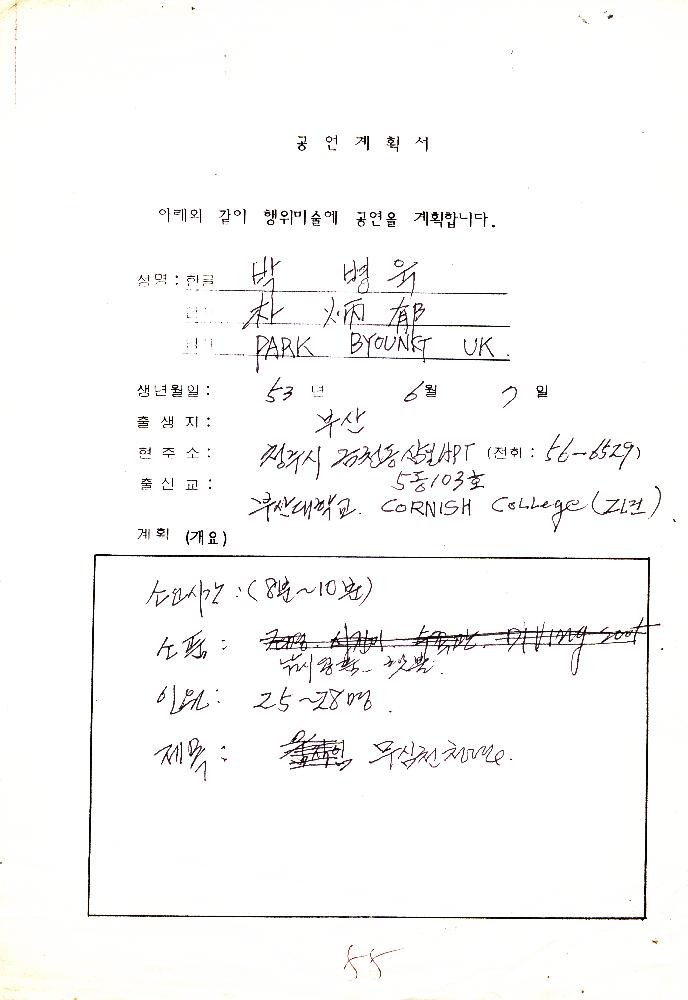 공연계획서
아래와 같이 행위미술에 공연을 계획합니다.
성명 : 한글 박 병 욱
朴 炳 郁
PARK BYOUNG UK.
생년월일 : 53 년 6 월 7 일
출 생 지 : 부산
현 주 소 : APT (전화 : 56-6529)
5동 103호
출 신 교 : 부산대학교. CORNISH College (
계획 (개요)
소요시간 : (8분~10분)
소품 : DIVING soot
낚시
인원 : 25~28명.
제목 : 무심천
55